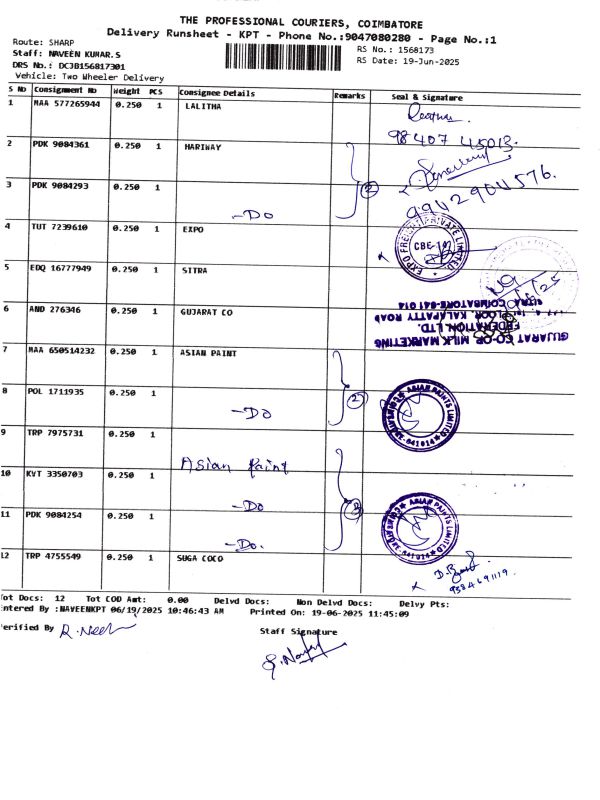 THE PROFESSIONAL COURIERS, COIMBATORE
Delivery Runsheet - KPT - Phone No.:9047080280 - Page No.:1
Route: SHARP
Staff: NAVEEN KUMAR.S
DRS No.: DCJB156817301
Vehicle: Two Wheeler Delivery
RS No.: 1568173
RS Date: 19-Jun-2025
S No Consignment No Weight PCS Consignee Details Remarks Seal & Signature
1 MAA 577265944 0.250 1 LALITHA
98407 45013
2 PDK 9084361 0.250 1 HARIWAY
3 PDK 9084293 0.250 1
-Do
2
9942904576.
4 TUT 7239610 0.250 1 EXPO
EXPO FREIGHT PRIVATE LIMITED
5 EDQ 16777949 0.250 1 SITRA
6 AND 276346 0.250 1 GUJARAT CO
GUJARAT CO-OP MILK MARKETING
FEDERATION LTD.
FLOOR, KALAPATTY ROAD
SITRA, COIMBATORE-641 014
7 MAA 650514232 0.250 1 ASIAN PAINT
8 POL 1711935 0.250 1
-Do
2
ASIAN PAINTS LIMITED
9 TRP 7975731 0.250 1
Asian Paint
10 KVT 3350703 0.250 1
-Do
3
11 PDK 9084254 0.250 1
-Do.
ASIAN PAINTS LIMITED
12 TRP 4755549 0.250 1 SUGA COCO
Tot Docs: 12 Tot COD Amt: 0.00 Delvd Docs: Non Delvd Docs: Delvy Pts:
Entered By :NAVEENKPT 06/19/2025 10:46:43 AM Printed On: 19-06-2025 11:45:09
Verified By
Staff Signature